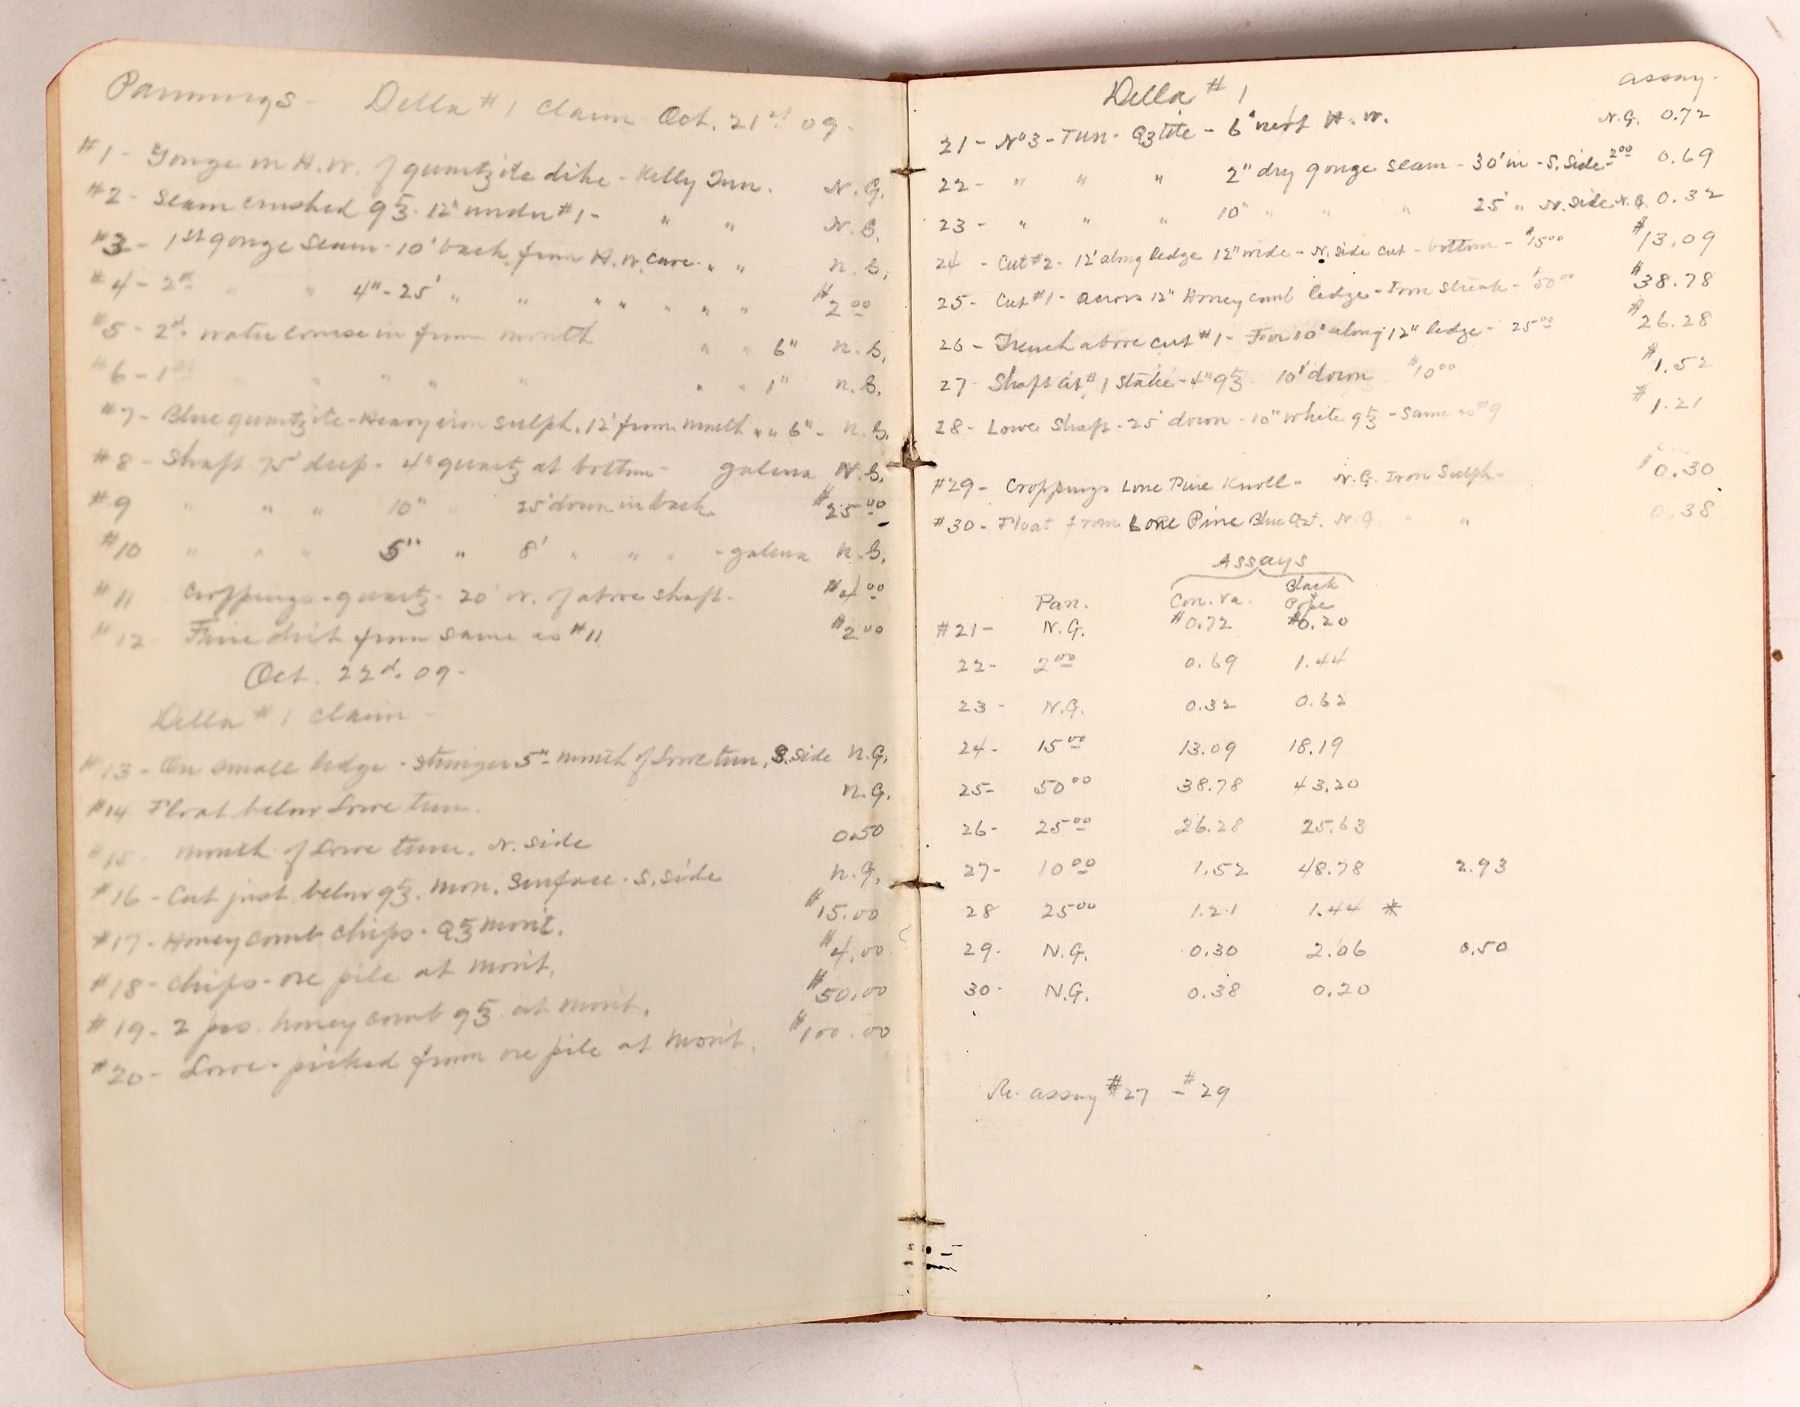 Pannings - Della #1 claim Oct. 21st 09-
#1 - Gouge on H.W. of quartzite dike - Kelly Tun. N.G.
#2 - Seam crushed qtz. 12" under #1 - " " N.G.
#3 - 1st gouge seam - 10' back from H.W. " " N.G.
#4 - 2nd " " 4" - 25' " " " " " " " $2.00
#5 - 2nd. water course in from mouth " " 6" N.G.
#6 - 1st " " " " " " 1" N.G.
#7 - Blue quartzite - Heavy iron sulph. 12' from mouth " " 6" - N.G.
#8 - Shaft 75' deep - 4" quartz at bottom - galena N.G.
#9 " " " 10" 25' down in back $25.00
#10 " " " 5" " 8' " " " - galena N.G.
#11 Croppings - quartz - 20' W. of above shaft - $4.00
#12 - Fine dirt from same as #11 $2.00
Oct. 22d. 09-
Della #1 claim -
#13 - On small ledge - stringer 5" mouth of Lowe tun, S. side N.G.
#14 Float below Lowe tun. N.G.
#15 - mouth of Lowe tun. N. side 0.50
#16 - Cut just below qtz. mon. surface - S. side N.G.
#17 - Honey comb chips - Qtz mon't. $15.00
#18 - chips - ore pile at mon't. $4.00
#19 - 2 pcs. honey comb qtz. at mon't. $50.00
#20 - Lowe - picked from ore pile at mon't. $100.00
Della #1 assay -
21 - No 3 - Tun - Qztite - 6" next H.W. N.G. 0.72
22 - " " " 2" dry gouge seam - 30' in - S. Side - 2.00 0.69
23 - " " " 10" " " " 25' " N. side N.G. 0.32
24 - Cut #2 - 12' along ledge 12" wide - N. side cut - bottom - $15.00 $13.09
25 - Cut #1 - across 12" Honey comb ledge - Iron streak - $50.00 $38.78
26 - Trench above cut #1 - For 10' along 12" ledge - 25.00 $26.28
27 - Shaft at #1 stake - 4" qtz 10' down $10.00 $1.52
28 - Lowe Shaft - 25' down - 10" white qtz - same as #9 $1.21
#29 - Croppings Lone Pine Knoll - N.G. Iron Sulph - $0.30
#30 - Float from Lone Pine Blue Qt. N.G. " " 0.38
Assays
Pan. Con. Va. Black
#21 - N.G. $0.72 $0.20
22 - 2.00 0.69 1.44
23 - N.G. 0.32 0.62
24 - 15.00 13.09 18.19
25 - 50.00 38.78 43.20
26 - 25.00 26.28 25.63
27 - 10.00 1.52 48.78 2.93
28 25.00 1.21 1.44 *
29 - N.G. 0.30 2.06 0.50
30 - N.G. 0.38 0.20
Re-assay #27 - #29